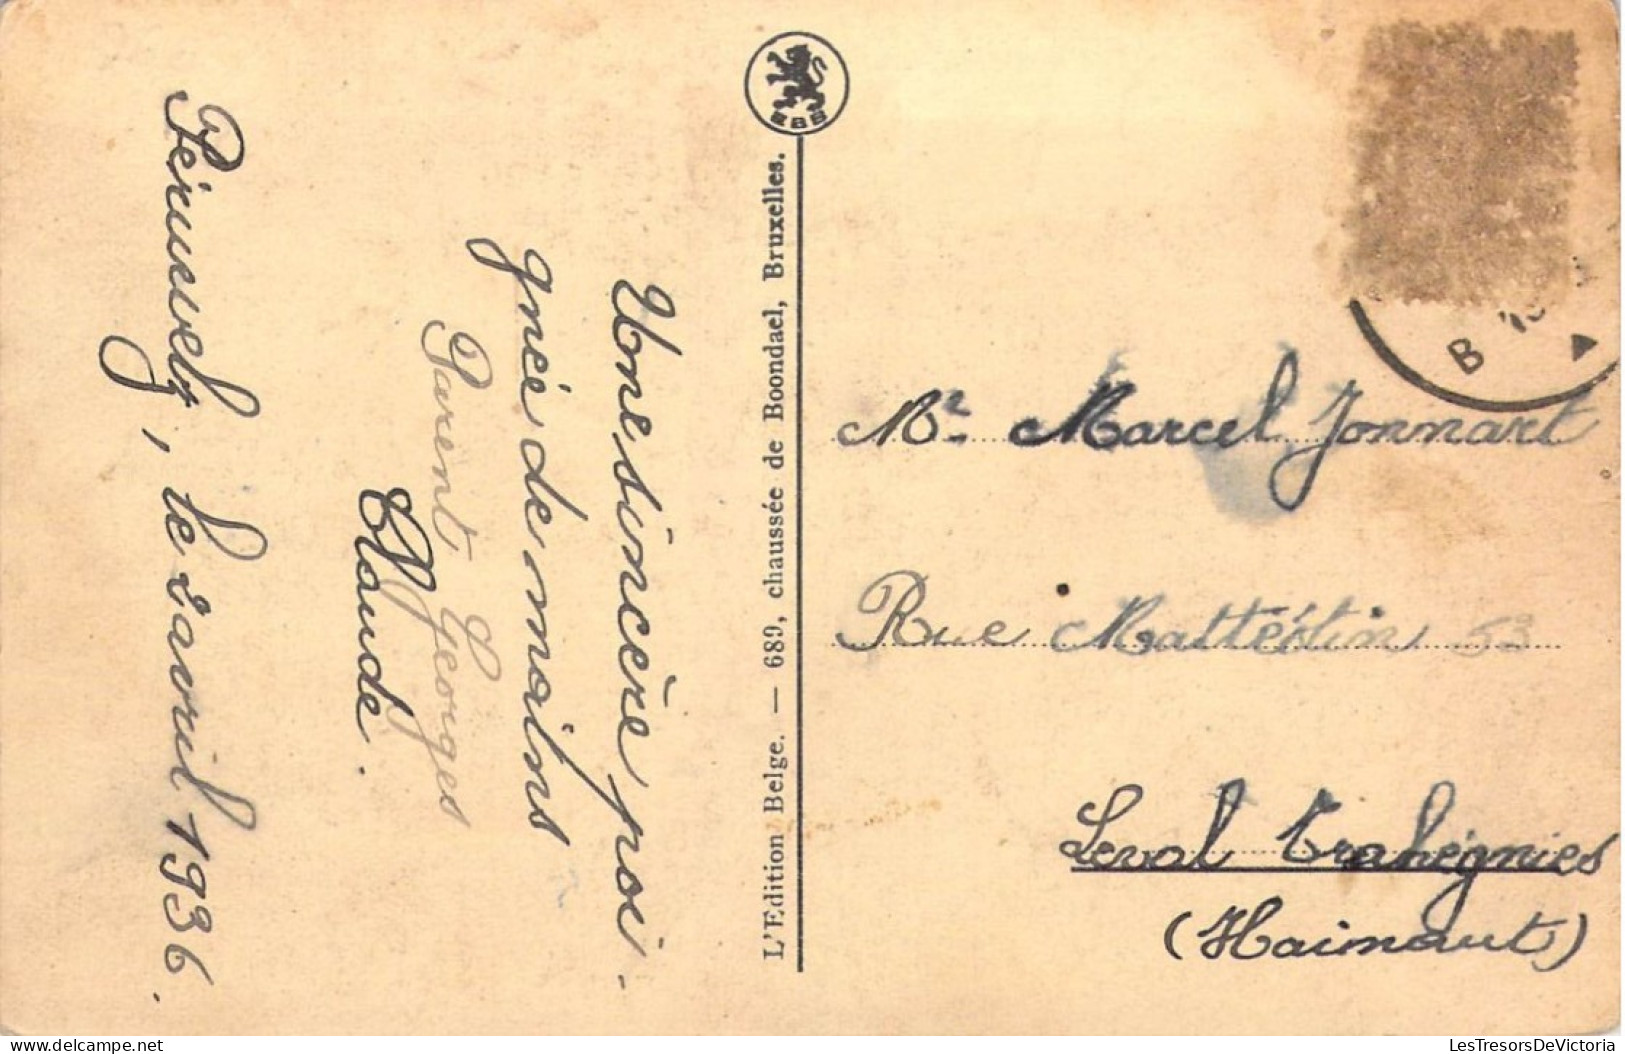 Péruwelz, le 2 avril 1936.
Une sincère poi-
gnée de mains
Parent Georges
Claude.
EBB
L'Edition Belge. — 689, chaussée de Boondael, Bruxelles.
B
Mr. Marcel Jonnart
Rue 53
Leval Trahégnies
(Hainaut)
LesTresorsDeVictoria